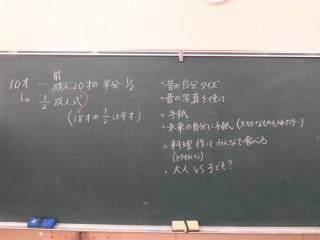 10才 … 前 成人20才の半分 1/2
→ 1/2 成人式
(18才の1/2は9才)
・昔の自分クイズ
・昔の写真を使って…
・手紙
・未来の自分に手紙(大切なものも入れたり…)
・料理作ってみんなで食べる
・大人 VS 子ども?